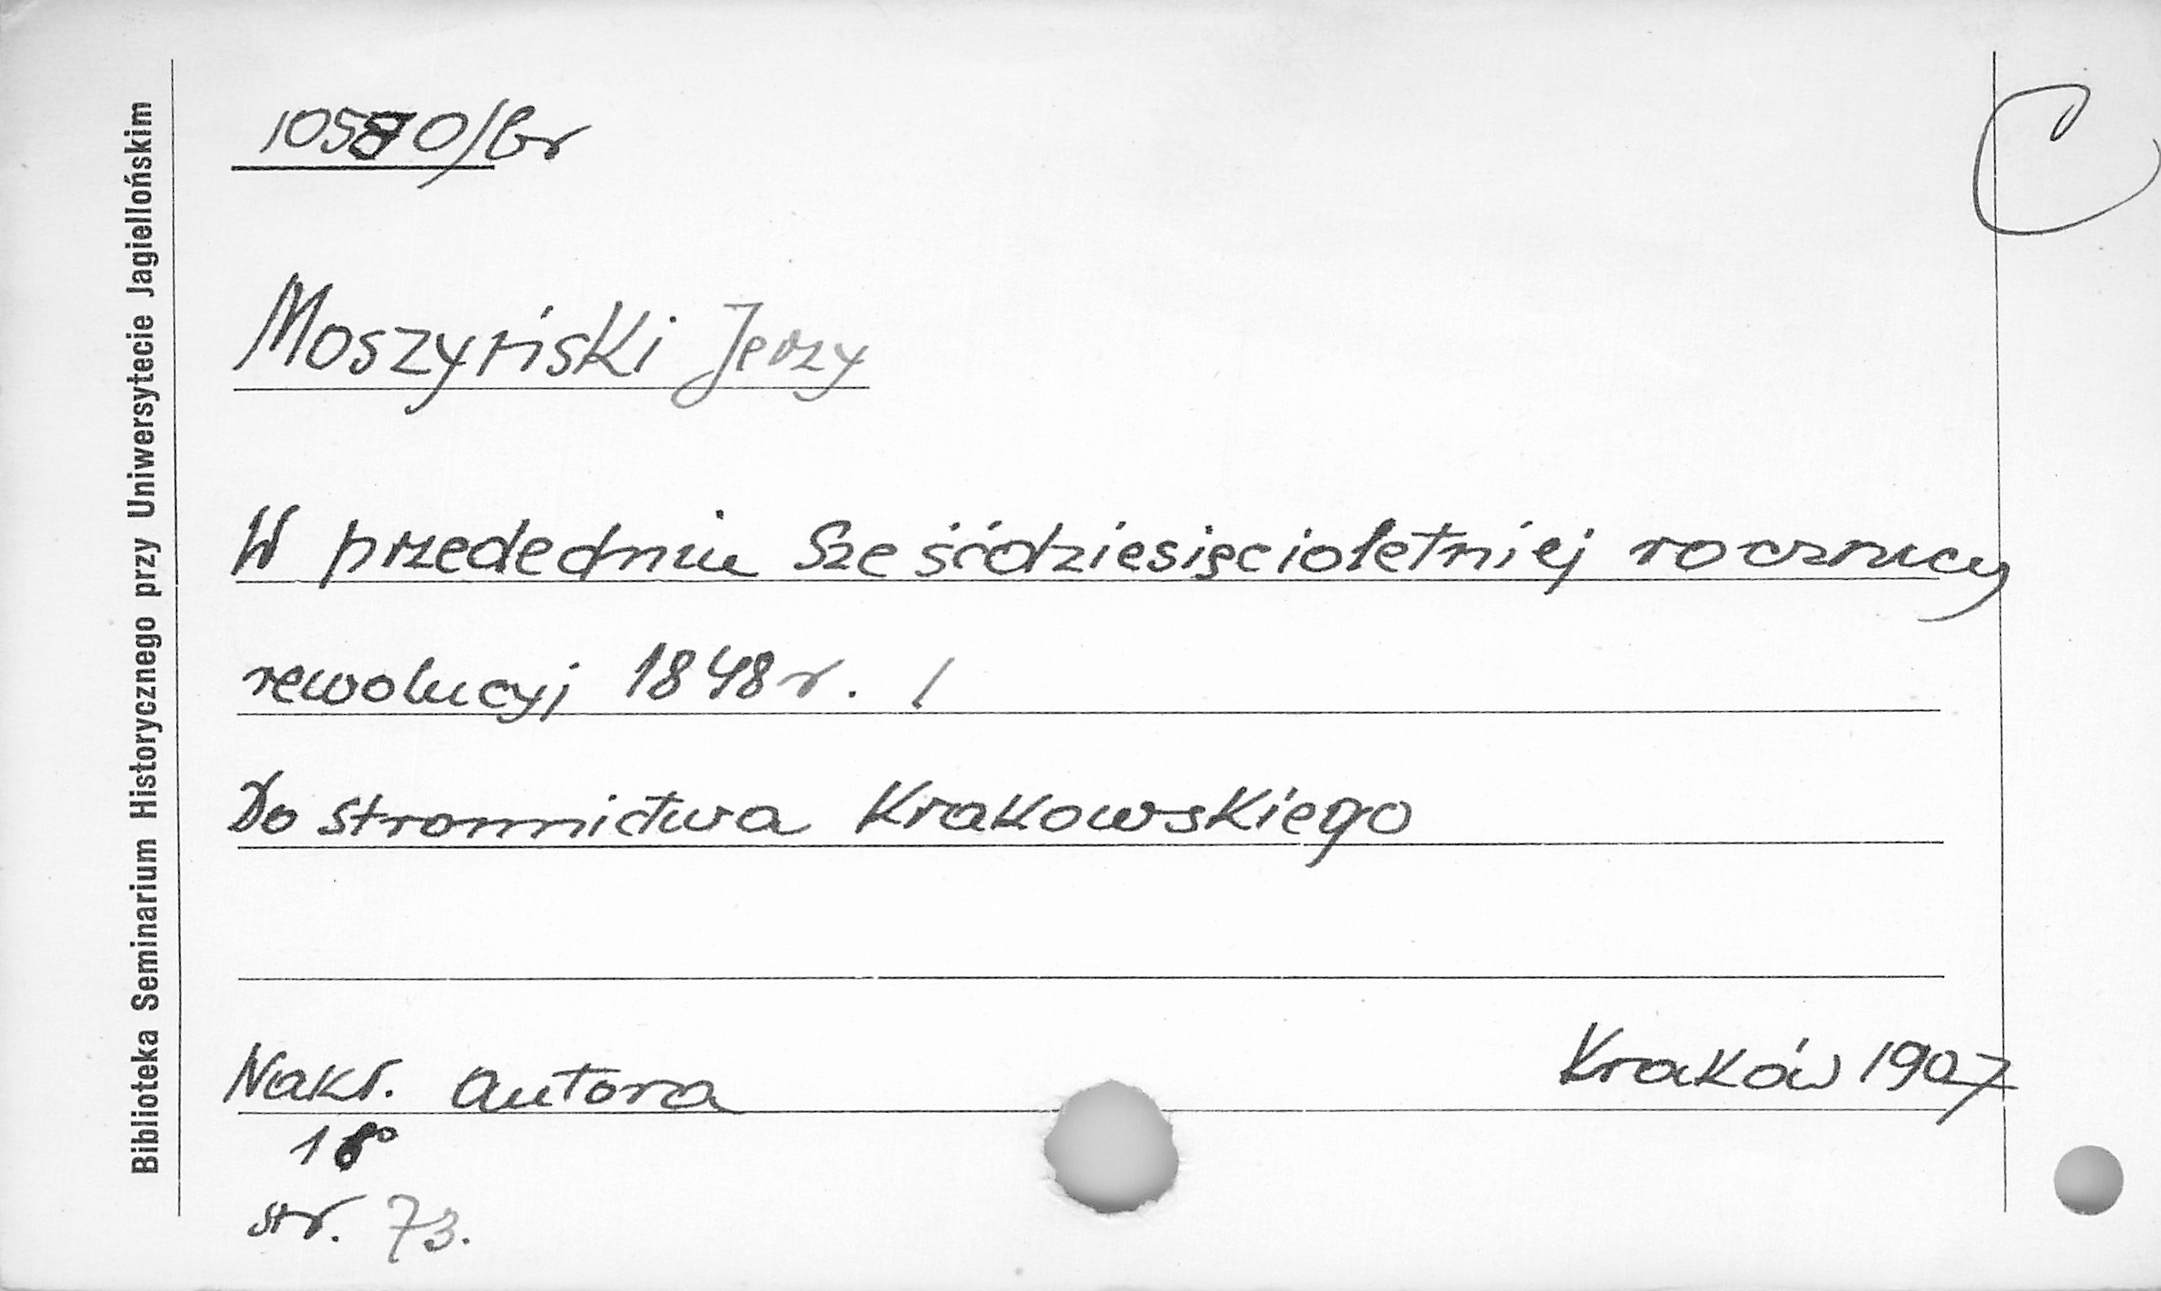 10580/Br
C
Moszyński Jerzy
W przededniu Sześćdziesięcioletniej rocznicy
rewolucyj 1848 r. /
Do stronnictwa Krakowskiego
Nakł. autora
Kraków 1907
16°
str. 73.
Biblioteka Seminarium Historycznego przy Uniwersytecie Jagiellońskim